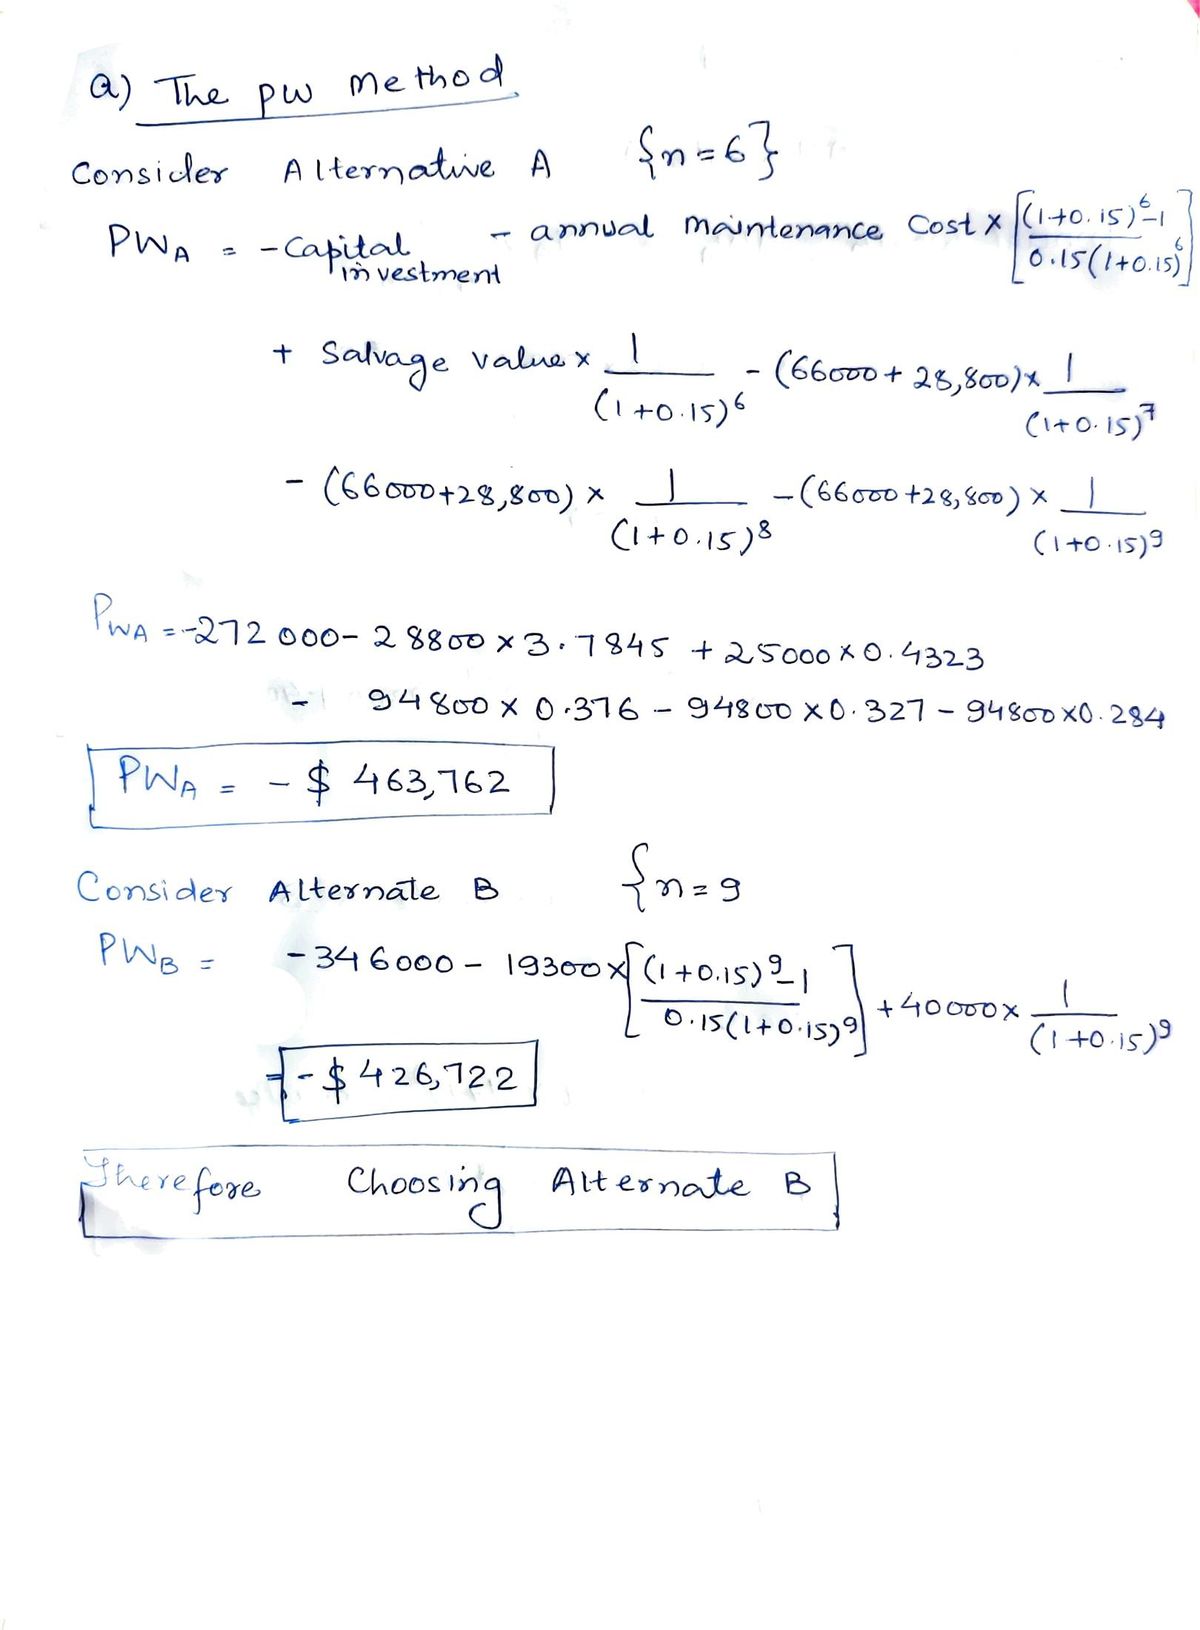 a) The PW Method.
Consider Alternative A {n=6}
PWA = -Capital investment - annual maintenance Cost x [(1+0.15)^6-1 / 0.15(1+0.15)^6]
+ Salvage value x 1/(1+0.15)^6 - (66000+28,800)x 1/(1+0.15)^7
- (66000+28,800) x 1/(1+0.15)^8 - (66000+28,800) x 1/(1+0.15)^9
PWA = -272000 - 28800 x 3.7845 + 25000 x 0.4323
- 94800 x 0.376 - 94800 x 0.327 - 94800 x 0.284
PWA = - $ 463,762
Consider Alternate B {n=9
PWB = -346000 - 19300 x [(1+0.15)^9-1 / 0.15(1+0.15)^9] + 40000 x 1/(1+0.15)^9
= - $ 426,722
Therefore Choosing Alternate B